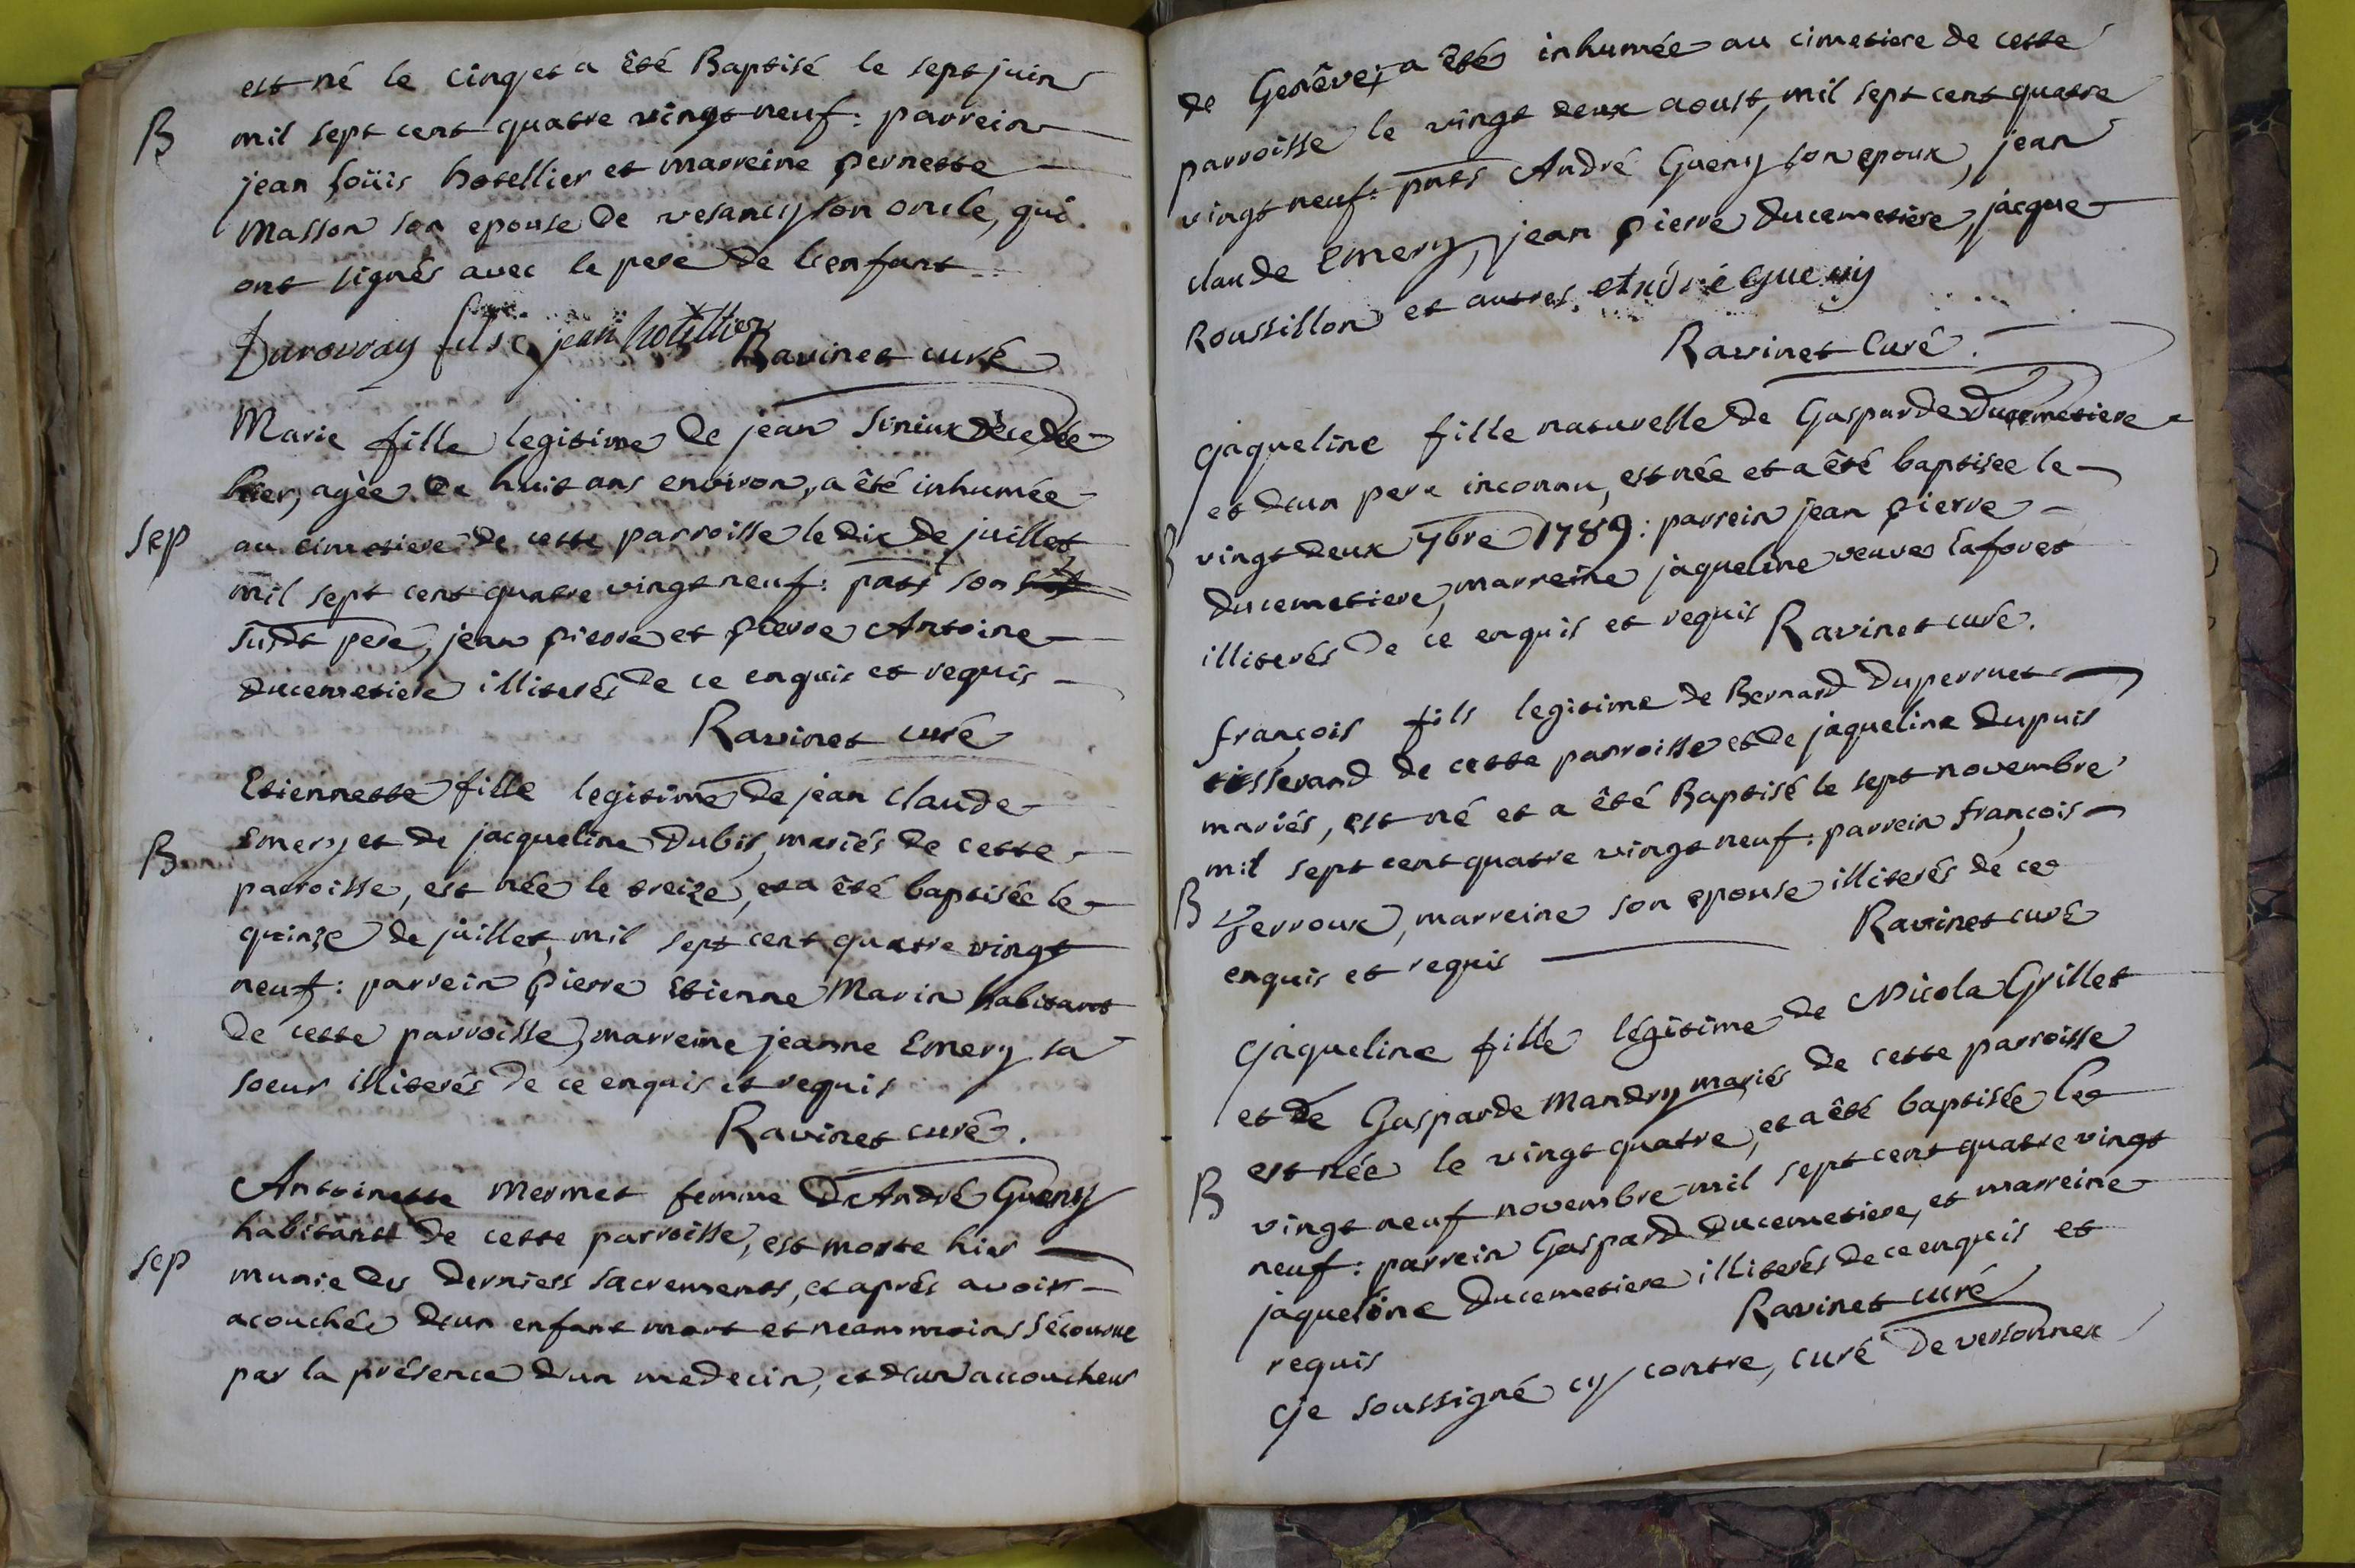 est né le cinq, et a êté Baptisé le sept juin
B
mil sept cent quatre vingt neuf: parrein
jean Loüis hotellier et marreine pernette
Masson son epouse de vesancy son oncle, qui
ont signés avec le pere de l'enfant
Durovray fils jean hotellier Ravinet curé
Marie fille legitime de jean décedée
hier, agée de huit ans environ, a êté inhumée
Sep
au cimetiere de cette parroisse le dix de juillet
mil sept cent quatre vingt neuf: pnts son
susdt pere, jean pierre et pierre Antoine
ducemetiere illiterés de ce enquis et requis
Ravinet curé
Etiennette fille legitime de jean claude
B
Emery et de jacqueline Dubis, mariés de cette
parroisse, est née le treize, et a êté baptisée le
quinze de juillet, mil sept cent quatre vingt
neuf: parrein pierre etienne Marin habitant
de cette parroisse, marreine jeanne Emery sa
soeur illiterés de ce enquis et requis
Ravinet curé.
Antoinette Mermet femme D'André Gueny
habitant de cette parroisse, est morte hier
Sep
munie des derniers sacrements, et aprés avoir
acouchée d'un enfant mort et neanmoins sécourue
par la présence d'un medecin, et d'un accoucheur
de Genêve, a êté inhumée au cimetiere de cette
parroisse le vingt deux aoust, mil sept cent quatre
vingt neuf: pnts André Gueny son epoux, jean
claude Emery, jean pierre Ducemetiere, jacque
Roussillon et autres. André Gueny
Ravinet Curé.
jaqueline fille naturelle de Gasparde Ducemetiere
et d'un pere inconnu, est née et a êté baptisée le
B
vingt deux 7bre 1789: parrein jean pierre
Ducemetiere, marreine jaqueline veuve Laforet
illiterés de ce enquis et requis Ravinet curé.
françois fils legitime de Bernard Duperruet
tisserand de cette parroisse et de jaqueline Dupuis
mariés, est né et a êté Baptisé le sept novembre
mil sept cent quatre vingt neuf: parrein françois
B
Verroux, marreine son epouse illiterés de ce
enquis et requis Ravinet curé
jaqueline fille légitime de Nicola Grillet
et de Gasparde Mandry mariés de cette parroisse
est née le vingt quatre, et a êté baptisée le
B
vingt neuf novembre mil sept cent quatre vingt
neuf: parrein Gaspard Ducemetiere, et marreine
jaqueline Ducemetiere illiterés de ce enquis et
requis Ravinet curé
je soussigné cy contre, curé de versonnex